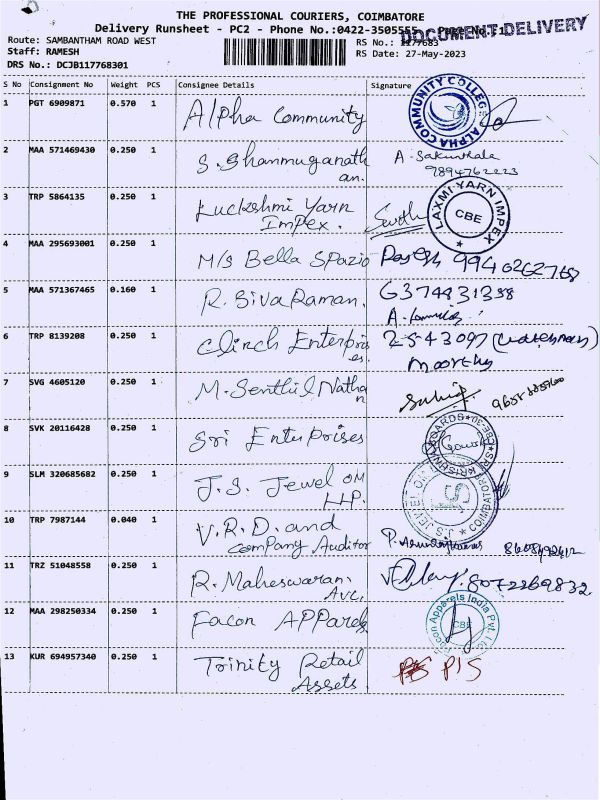 THE PROFESSIONAL COURIERS, COIMBATORE
Delivery Runsheet - PC2 - Phone No.:0422-3505555
DOCUMENT DELIVERY
Route: SAMBANTHAM ROAD WEST
RS No.: 1177683
Staff: RAMESH
RS Date: 27-May-2023
DRS No.: DCJB117768301
S No Consignment No Weight PCS Consignee Details Signature
1 PGT 6909871 0.570 1 Alpha Community
ALPHA COMMUNITY COLLEGE
2 MAA 571469430 0.250 1 S. Shanmuganath
an.
A. Sakunthala
9894762223
3 TRP 5864135 0.250 1 Luckshmi Yarn
Impex.
LAXMI YARN IMPEX
CBE
4 MAA 295693001 0.250 1 M/S Bella Spazio
5 MAA 571367465 0.160 1 R. Siva Raman.
6374831398
6 TRP 8139208 0.250 1 Clinch Enterpris
es.
2543097
moorthy
7 SVG 4605120 0.250 1 M. Senthil Natha
n
8 SVK 20116428 0.250 1 Sri Enterprises
SRI KRISHNA BOARDS CBE-30
9 SLM 320685682 0.250 1 J.S. Jewel OM
LLP.
J.S. JEWEL OM COIMBATORE
10 TRP 7987144 0.040 1 V.R.D. and
company Auditor
11 TRZ 51048558 0.250 1 R. Maheswaran.
AVC.
8072269832
12 MAA 298250334 0.250 1 Facon APParels
Facon Apparels India Pvt. Ltd.
CBE
13 KUR 694957340 0.250 1 Trinity Retail
Assets.
P1S